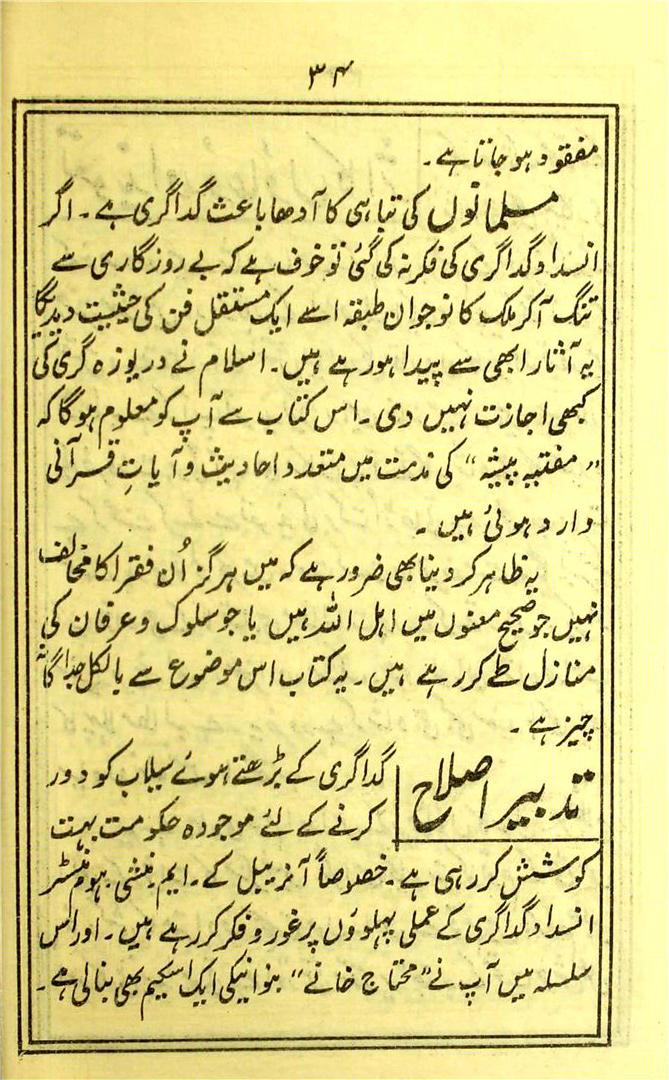 ۳۴
مفقود ہو جاتا ہے۔
مسلمانوں کی تباہی کا آدھا باعث گداگری ہے۔ اگر
انسداد گداگری کی فکر نہ کی گئی تو خوف ہے کہ بے روزگاری سے
تنگ آکر ملک کا نوجوان طبقہ اسے ایک مستقل فن کی حیثیت دیدیگا
یہ آثار ابھی سے پیدا ہو رہے ہیں۔ اسلام نے دریوزہ گری کی
کبھی اجازت نہیں دی۔ اس کتاب سے آپ کو معلوم ہوگا کہ
” پیشہ“ کی مذمت میں متعدد احادیث و آیاتِ قرآنی
وارد ہوئی ہیں۔
یہ ظاہر کر دینا بھی ضرور ہے کہ میں ہرگز اُن فقرا کا مخالف
نہیں جو صحیح معنوں میں اہل اللہ ہیں یا جو سلوک و عرفان کی
منازل طے کر رہے ہیں۔ یہ کتاب اس موضوع سے بالکل جداگانہ
چیز ہے۔
تدبیر اصلاح
گداگری کے بڑھتے ہوئے سیلاب کو دور
کرنے کے لئے موجودہ حکومت بہت
کوشش کر رہی ہے۔ خصوصاً آنریبل کے۔ ایم۔ منشی۔ ہوم منسٹر
انسداد گداگری کے عملی پہلوؤں پر غور و فکر کر رہے ہیں۔ اور اس
سلسلہ میں آپ نے ”محتاج خانے“ بنوانیکی ایک اسکیم بھی بنالی ہے۔